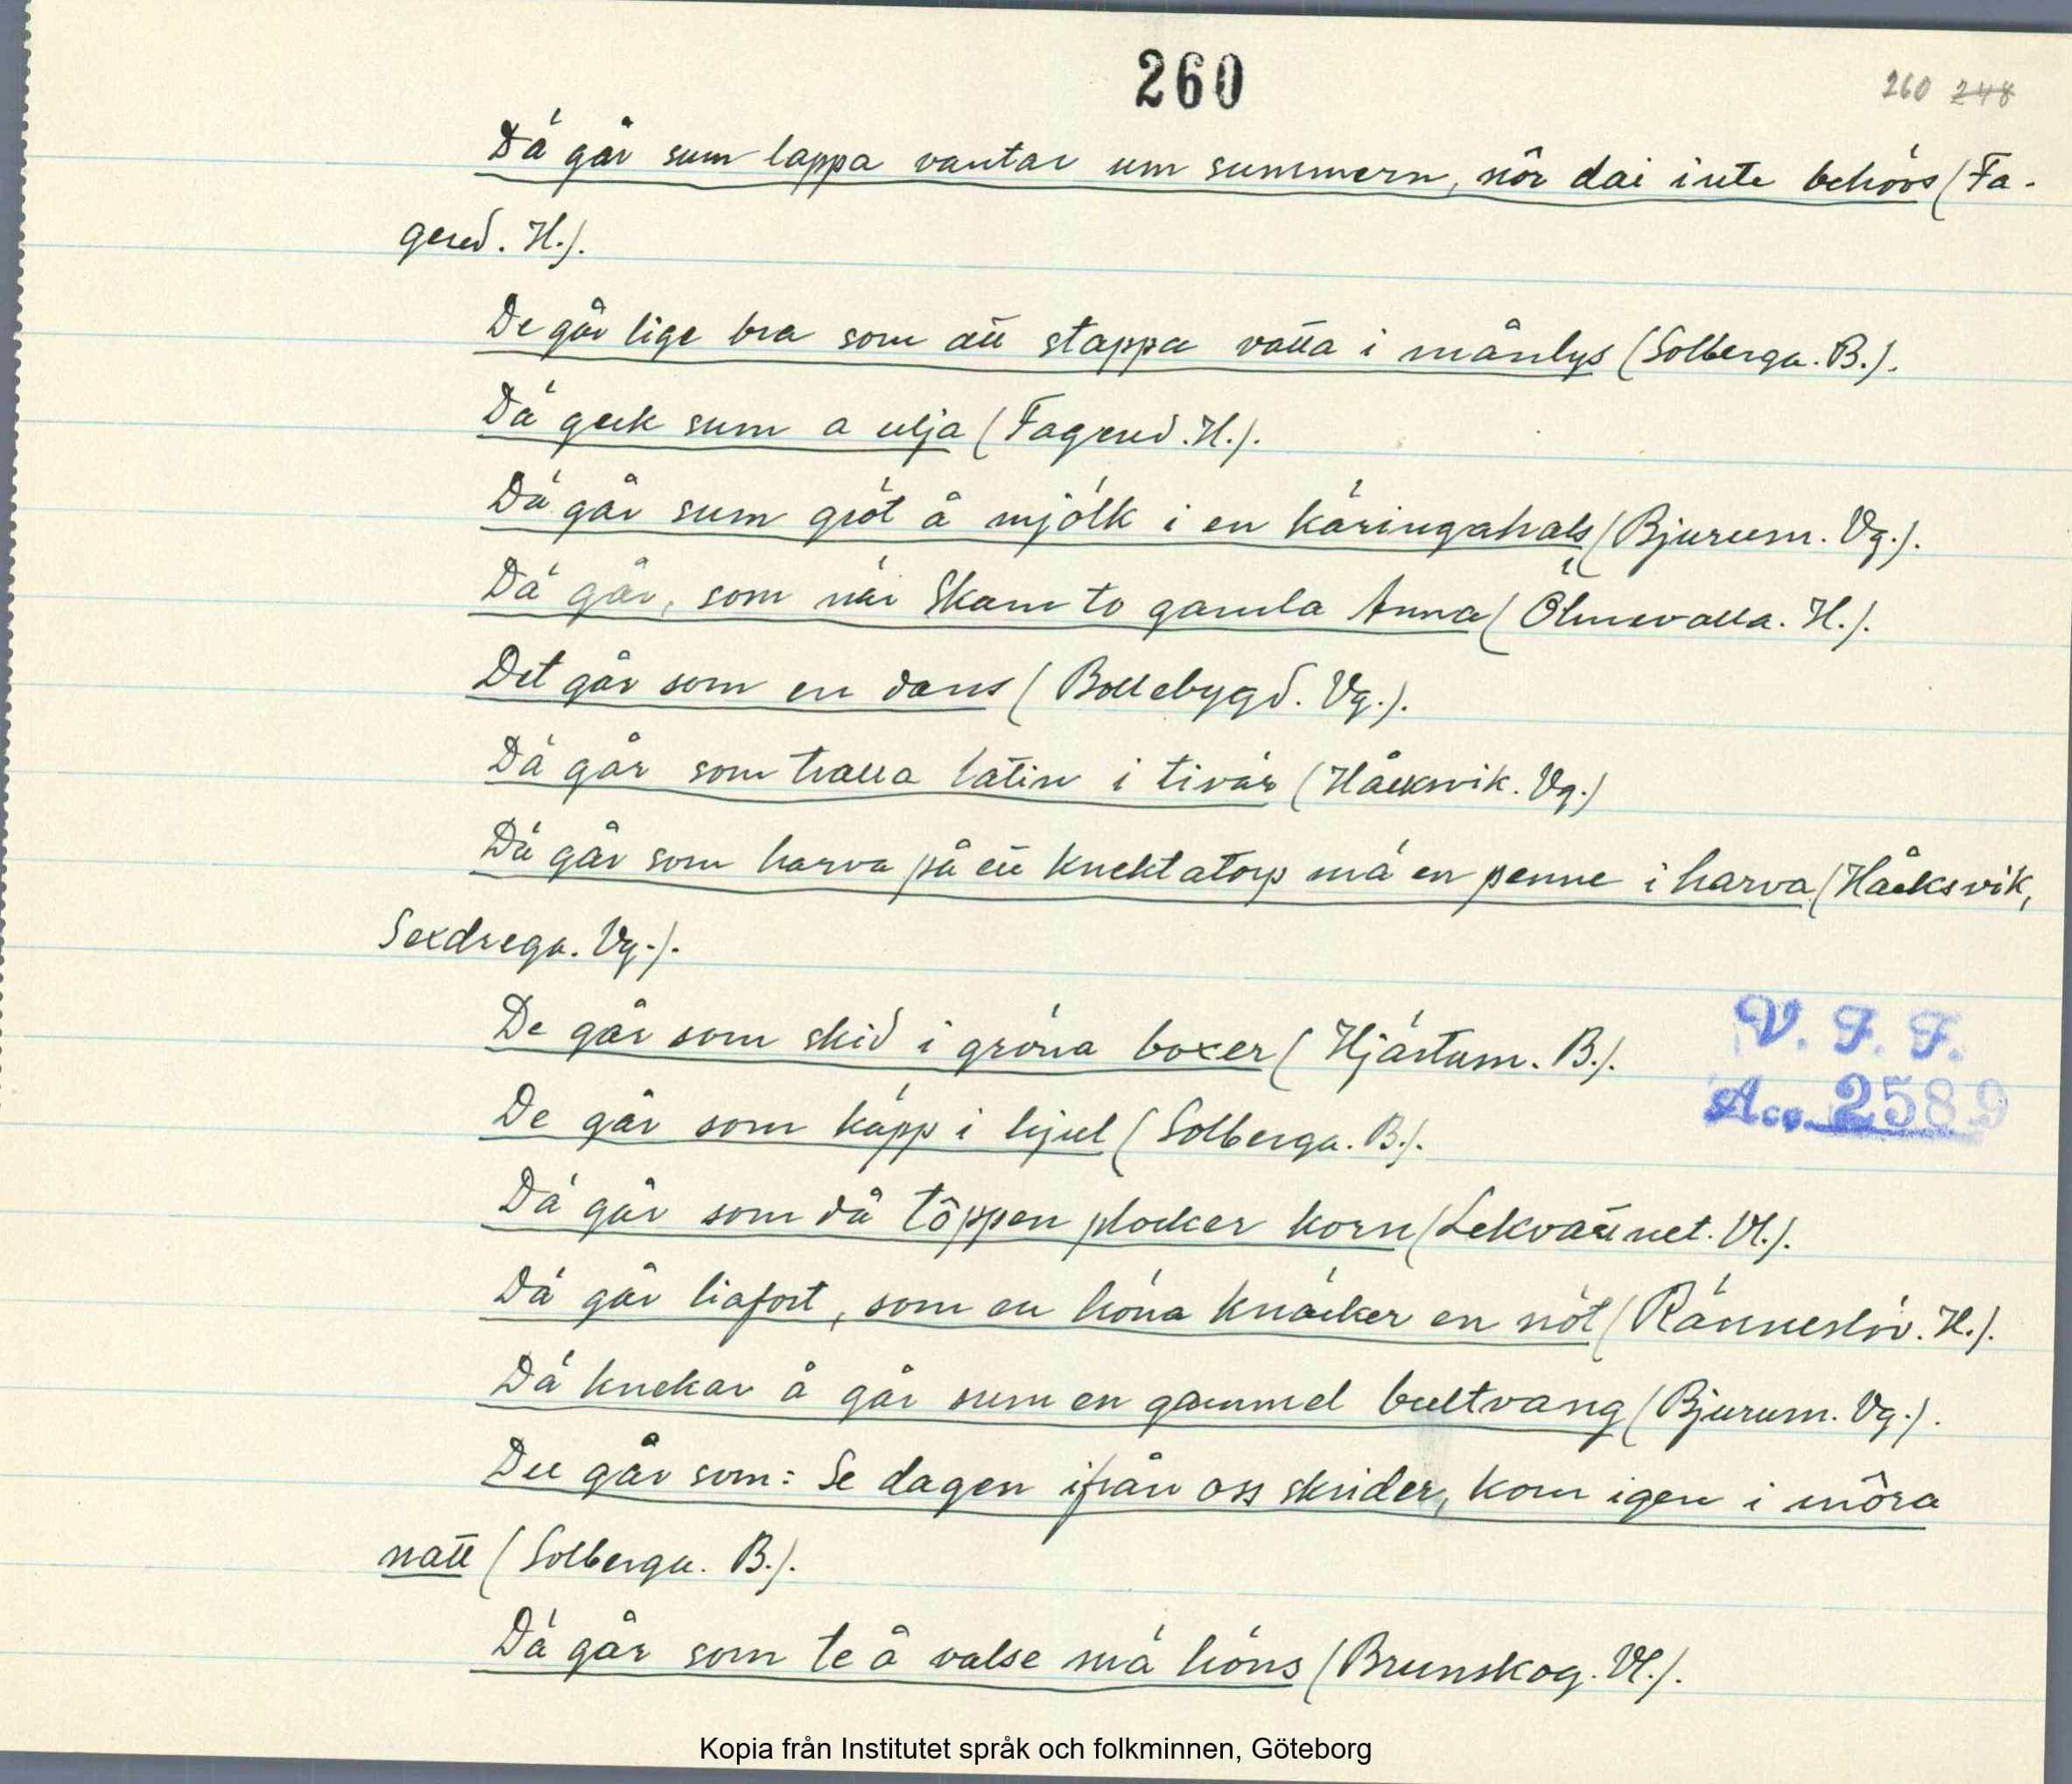 260
260 248
Dä går sum lappa vantar um summern, nôr dai inte behövs (Fa-
gered. H.).
De går lige bra som att stappa vatta i månlys (Solberga. B.).
Dä geck sum a olja (Fagered. H.).
Dä går sum gröt å mjölk i en käringahals (Bjurum. Vg.).
Dä går, som när Skam to gamla Anna (Ölmevalla. H.).
Det går som en dans (Bollebygd. Vg.).
Dä går som tralla latin i tivär (Håcksvik. Vg.)
Dä går som harva på ett knektatorp mä en penne i harva (Håcksvik,
Sexdrega. Vg.).
De går som skid i gröna boxer (Hjärtum. B.).
V. F. F.
De går som käpp i hjul (Solberga. B.).
Acc. 2589
Dä går som då tôppen plocker korn (Lekvattnet. Vl.).
Dä går liafort, som en höna knäcker en nöt (Ränneslöv. H.).
Dä knekar å går sum en gammel bultvang (Bjurum. Vg.).
Det går som: Se dagen ifrån oss skrider, kom igen i môra
natt (Solberga. B.).
Dä går som te å valse mä höns (Brunskog. Vl.).
Kopia från Institutet språk och folkminnen, Göteborg